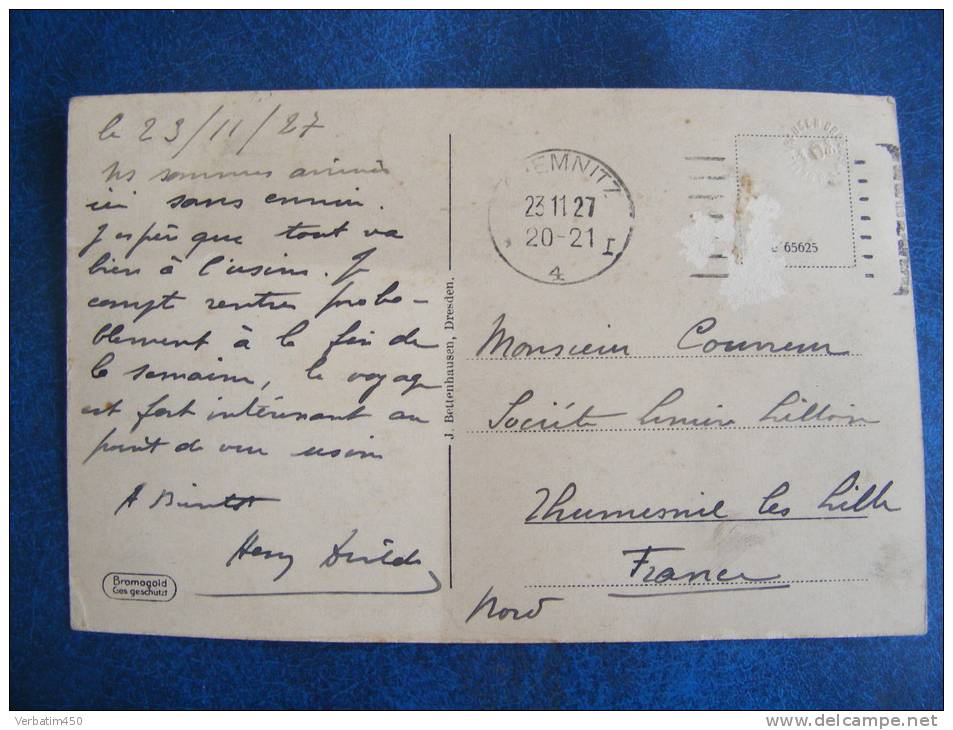 le 23/11/27
Ns sommes arrivés
ici sans ennui.
J'espèr que tout va
bien à l'usine. Je
compt rentrer proba-
blement à la fin de
la semaine, le voyage
est fort intéressant au
point de vue usine
A Bientôt
Henry
Bromogold
Ges geschützt
J. Bettenhausen, Dresden.
EMNITZ
23 11 27
20-21 I
4
65625
Monsieur Couvreur
Société Lilloise
Thumesnil les Lille
France
Nord
Verbatim450
www.delcampe.net